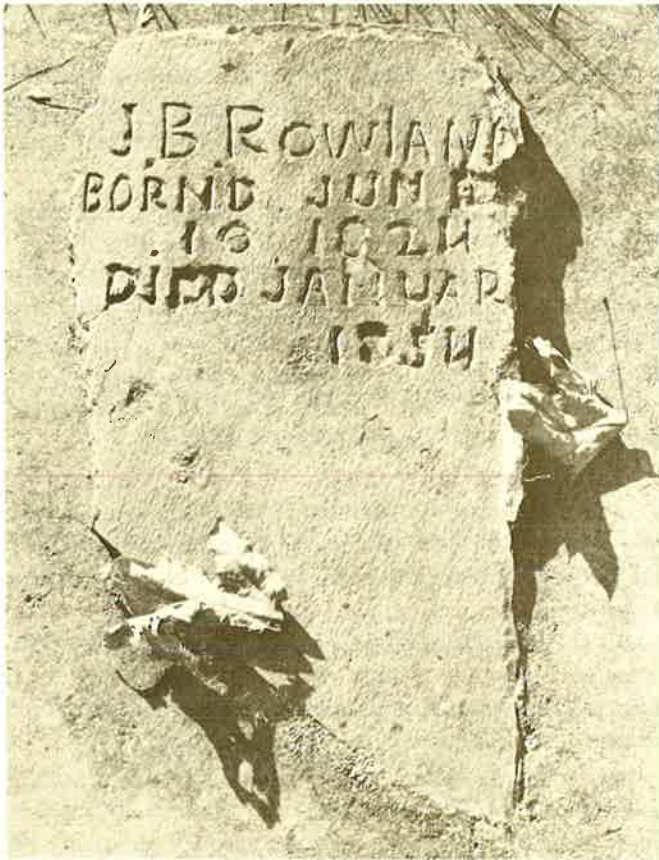 J.B.ROWLAND
BORND JUNE
16 1824
DIED JANUAR
1854